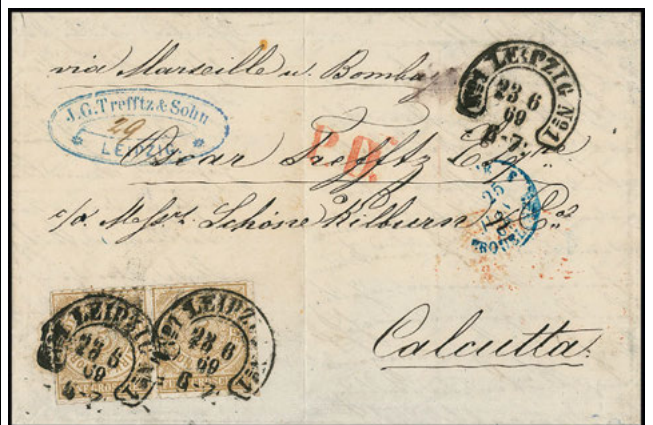 via Marseille u. Bombay
No1 LEIPZIG No1
23 6
69
6-7.
J.G. Trefftz & Sohn
29
LEIPZIG
Oscar Trefftz Esqre.
P.D.
25
c/o Messrs. Schöne Kilburn & Co
Calcutta.
No1 LEIPZIG No1
23 6
69
6-7.
No1 LEIPZIG No1
23 6
69
6-7.